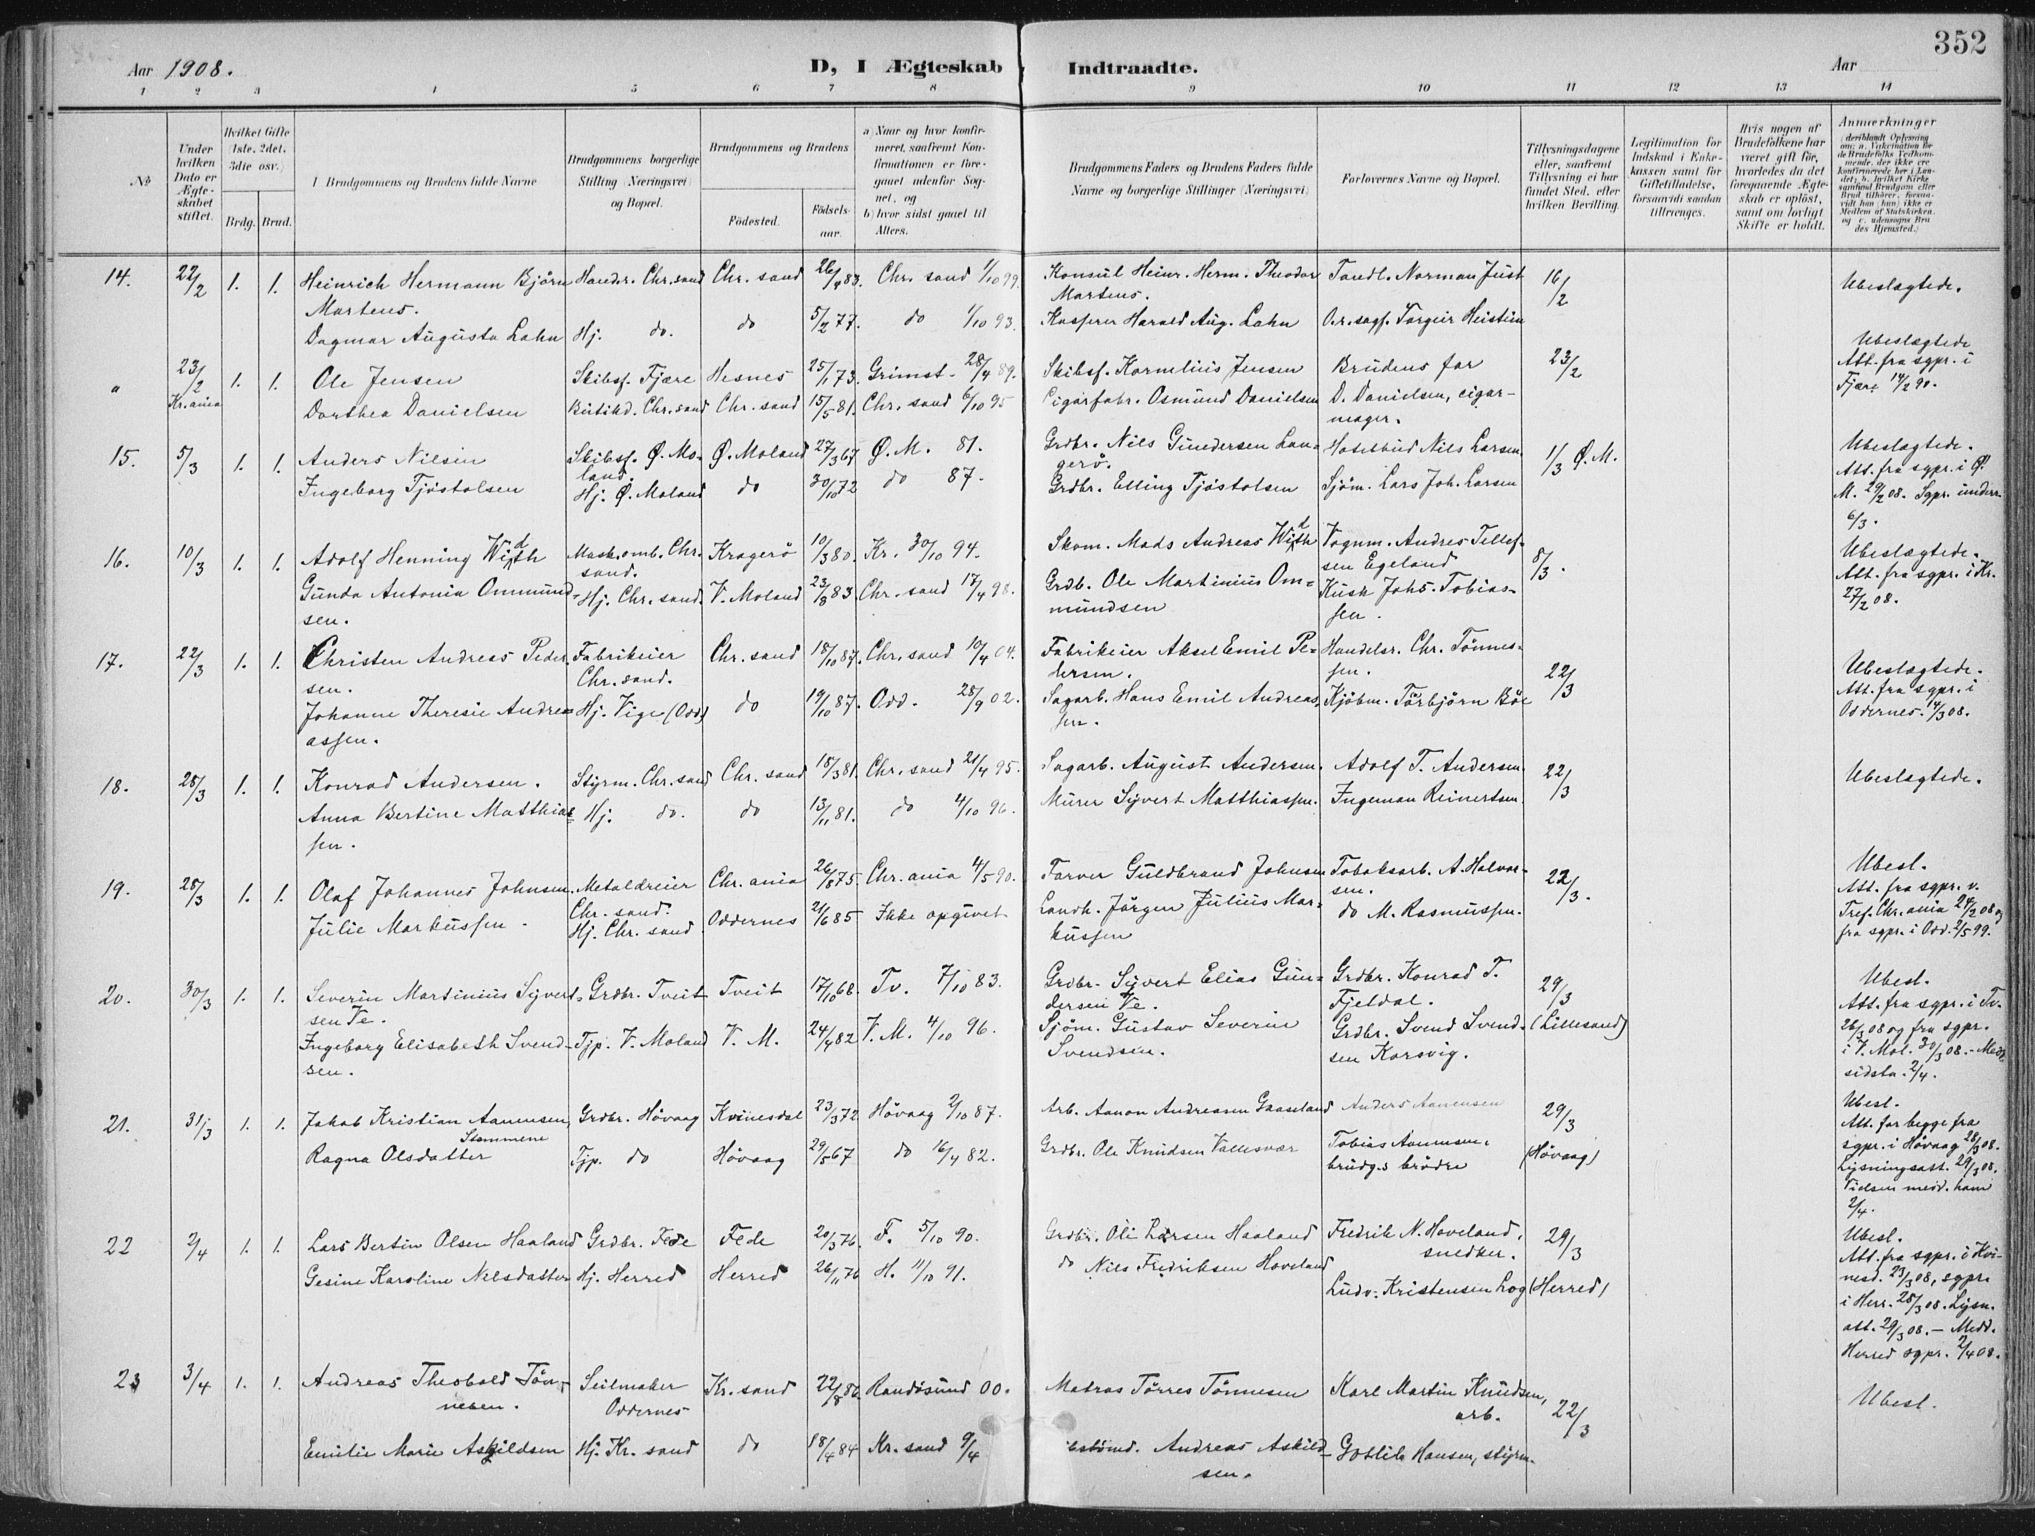 352
Aar 1908.
D, I Ægteskab Indtraadte.
Aar
1 2 3 4 5 6 7 8 9 10 11 12 13 14
No
Under hvilken Dato er Ægteskabet stiftet.
Hvilket Gifte (1ste, 2det, 3die osv.)
Brdg. Brud.
Brudgommens og Brudens fulde Navne
Brudgommens borgerlige Stilling (Næringsvei) og Bopæl.
Brudgommens og Brudens
Födested. Födselsaar.
a) Naar og hvor konfirmeret, saafremt Konfirmationen er foregaaet udenfor Sognet, og
b) hvor sidst gaaet til Alters.
Brudgommens Faders og Brudens Faders fulde Navne og borgerlige Stillinger (Næringsvei)
Forlovernes Navne og Bopæl.
Tillysningsdagene eller, saafremt Tillysning ei har fundet Sted, efter hvilken Bevilling.
Legitimation for Indskud i Enkekassen samt for Giftetilladelse, forsaavidt saadan tiltrænges.
Hvis nogen af Brudefolkene har været gift för, hvorledes da det foregaaende Ægteskab er oplöst, samt om lovligt Skifte er holdt.
Anmærkninger
14. 22/2 1. 1. Heinrich Hermann Björn Martens. Handr. Chr.sand Chr. sand 26/4 83. Chr. sand 1/10 99. Konsul Heinr. Herm. Theodor Martens. Tandl. Norman Just 16/2 Ubeslægtede.
Dagmar Augusta Lahn Hj. do. do 5/2 77. do 1/10 93. Kasserer Harald Aug. Lahn O.r.sagf. Torgeir Heistein
" 23/2 Kr.ania 1. 1. Ole Jensen Skibsf. Fjære Hesnes 25/1 73. Grimst. 28/4 89. Skibsf. Kornelius Jensen Brudens far 23/2 Ubeslægtede Att. fra sgpr. i Fjære 14/2 90.
Dorthea Danielsen Butikd. Chr.sand Chr. sand 15/5 81. Chr. sand 6/10 95 Cigarfabr. Osmund Danielsen D. Danielsen, cigarmager.
15. 5/3 1. 1. Anders Nilsen Skibsf. Ø. Moland. Ø. Moland 27/3 67 Ø. M. 81. Grdbr. Nils Gundersen Langerö. Hotelbud Nils Larsen 1/3 Ø. M. Ubeslægtede. Att. fra sgpr. i Ø. M. 29/2 08. Sgpr. underr. 6/3.
Ingeborg Tjöstolsen Hj. Ø. Moland do 30/10 72 do 87. Grdbr. Elling Tjöstolsen Sjöm. Lars Joh. Larsen
16. 10/3 1. 1. Adolf Henning Width Mask.omb. Chr.sand. Kragerö 10/3 80. Kr. 30/10 94. Skom. Mads Andreas Width Vognm. Andres Tellefsen Egeland 8/3. Ubeslægtede. Att. fra sgpr. i Kr. 27/2 08.
Gunda Antonia Ommundsen. Hj. Chr. sand. V. Moland 23/8 83. Chr. sand 17/4 98. Grdb. Ole Martinius Ommundsen Kusk Johs. Tobiassen.
17. 22/3 1. 1. Christen Andreas Pedersen. Fabrikeier Chr.sand. Chr. sand 18/10 87. Chr. sand 10/4 04. Fabrikeier Aksel Emil Pedersen. Handelsr. Chr. Tönnessen. 22/3 Ubeslægtede. Att. fra sgpr. i Oddernes. 4/3 08.
Johanne Theresie Andreassen. Hj. Vige (Odd) do 19/10 87. Odd. 28/9 02. Sagarb. Hans Emil Andreassen. Kjöbm. Torbjörn Böe
18. 28/3 1. 1. Konrad Andersen. Styrm. Chr. sand Chr. sand 18/3 81. Chr. sand 21/4 95. Sagarb. August Andersen. Adolf T. Andersen. 22/3 Ubeslægtede.
Anna Bertine Matthiassen. Hj. do. do 13/11 81. do 4/10 96. Murer Syvert Matthiassen. Ingeman Reinertsen
19. 28/3 1. 1. Olaf Johannes Johnsen. Metaldreier Chr. sand. Chr. ania 26/8 75. Chr. ania 4/5 90. Farver Guldbrand Johnsen Tobaksarb. A. Halvorsen. 22/3. Ubesl. Att. fra sgpr. v. Tref. Chr. ania 24/2 08 og fra sgpr. i Odd. 2/5 99.
Julie Markussen. Hj. Chr. sand Oddernes 21/6 85 Ikke opgivet Landh. Jörgen Julius Markussen do M. Rasmussen.
20. 30/3 1. 1. Severin Martinius Syvertsen Ve. Grdbr. Tveit Tveit 17/10 68. Tv. 7/10 83. Grdbr. Syvert Elias Gundersen Ve. Grdbr. Konrad T. Fjeldal. 29/3 (Lillesand) Ubesl. Att. fra sgpr. i Tv. 26/3 08 og fra sgpr. i V. Mol. 30/3 08. – Medd. sidste. 2/4.
Ingeborg Elisabeth Svendsen. Tjp. V. Moland V. M. 24/4 82 V. M. 4/10 96. Sjöm. Gustav Severin Svendsen. Grdbr. Svend Svendsen Korsvig.
21. 31/3 1. 1. Jakob Kristian Aanensen Stemmene Grdbr. Hövaag Kvinesdal 23/3 72 Hövaag 2/10 87. Arb. Aanon Andreasen Gaaseland Anders Aanensen 29/3 (Hövaag) Ubesl. Att. for begge fra sgpr. i Hövaag 28/3 08. Lysningsatt. 29/3 08. Vielsen medd. ham 2/4.
Ragna Olsdatter Tjp. do Hövaag 29/5 67 do 16/4 82. Grdbr. Ole Knudsen Vallesvær Tobias Aanensen, brudg.s brödre
22 2/4 1. 1. Lars Bertin Olsen Haaland Grdbr. Fede Fede 20/3 76. F. 5/10 90. Grdbr. Ole Larsen Haaland Fredrik N. Hoveland, snedker. 29/3 (Herred) Ubesl. Att. fra sgpr. i Kvinesd. 23/3 08, sgpr. i Herr. 28/3 08. Lysn.att. 29/3 08. – Medd. Herred sgpr. 2/4 08.
Gesine Karoline Nilsdatter Hj. Herred Herred 26/11 76 H. 11/10 91. do Nils Fredriksen Hoveland Ludv. Kristensen Log
23 3/4 1. 1. Andreas Theobald Tönnesen. Seilmaker Oddernes Kr. sand 22/8 86. Randösund 00. Matros Törres Tönnesen Karl Martin Knudsen, arb. 22/3 Ubesl.
Emilie Marie Askildsen Hj. Kr. sand do 18/4 84 Kr. sand 9/4 Andreas Askildsen. Gotlib Hansen, styrm.